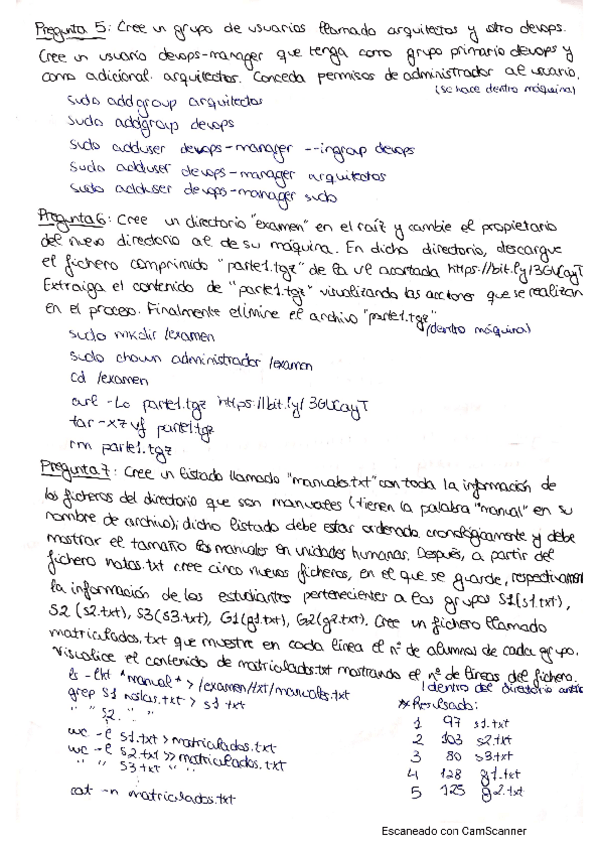 Pregunta 5: Cree un grupo de usuarios llamado arquitectos y otro devops.
Cree un usuario devops-manager que tenga como grupo primario devops y
como adicional arquitectos. Conceda permisos de administrador al usuario.
(se hace dentro máquina)
sudo addgroup arquitectos
sudo addgroup devops
sudo adduser devops-manager --ingroup devops
sudo adduser devops-manager arquitectos
sudo adduser devops-manager sudo
Pregunta 6: Cree un directorio "examen" en el raíz y cambie el propietario
del nuevo directorio al de su máquina. En dicho directorio, descargue
el fichero comprimido "parte1.tgz" de la url acortada https://bit.ly/3GUCayT
Extraiga el contenido de "parte1.tgz" visualizando las acciones que se realizan
en el proceso. Finalmente elimine el archivo "parte1.tgz"
(dentro máquina)
sudo mkdir /examen
sudo chown administrador /examen
cd /examen
curl -Lo parte1.tgz https://bit.ly/3GUCayT
tar -xzvf parte1.tgz
rm parte1.tgz
Pregunta 7: Cree un listado llamado "manuales.txt" con toda la información de
los ficheros del directorio que son manuales (tienen la palabra "manual" en su
nombre de archivo); dicho listado debe estar ordenado cronológicamente y debe
mostrar el tamaño los manuales en unidades humanas. Después, a partir del
fichero notas.txt cree cinco nuevos ficheros, en el que se guarde, respectivamen
la información de los estudiantes pertenecientes a los grupos S1(s1.txt),
S2 (s2.txt), S3(s3.txt), G1(g1.txt), G2(g2.txt). Cree un fichero llamado
matriculados.txt que muestre en cada línea el nº de alumnos de cada grupo.
Visualice el contenido de matriculados.txt mostrando el nº de líneas del fichero.
(dentro del directorio
ls -lht *manual* > /examen/txt/manuales.txt
grep S1 notas.txt > s1.txt
" " S2. " "
wc -l s1.txt > matriculados.txt
wc -l s2.txt >> matriculados.txt
" " s3.txt " "
cat -n matriculados.txt
Resultado:
1 97 s1.txt
2 103 s2.txt
3 80 s3.txt
4 128 g1.txt
5 125 g2.txt
Escaneado con CamScanner